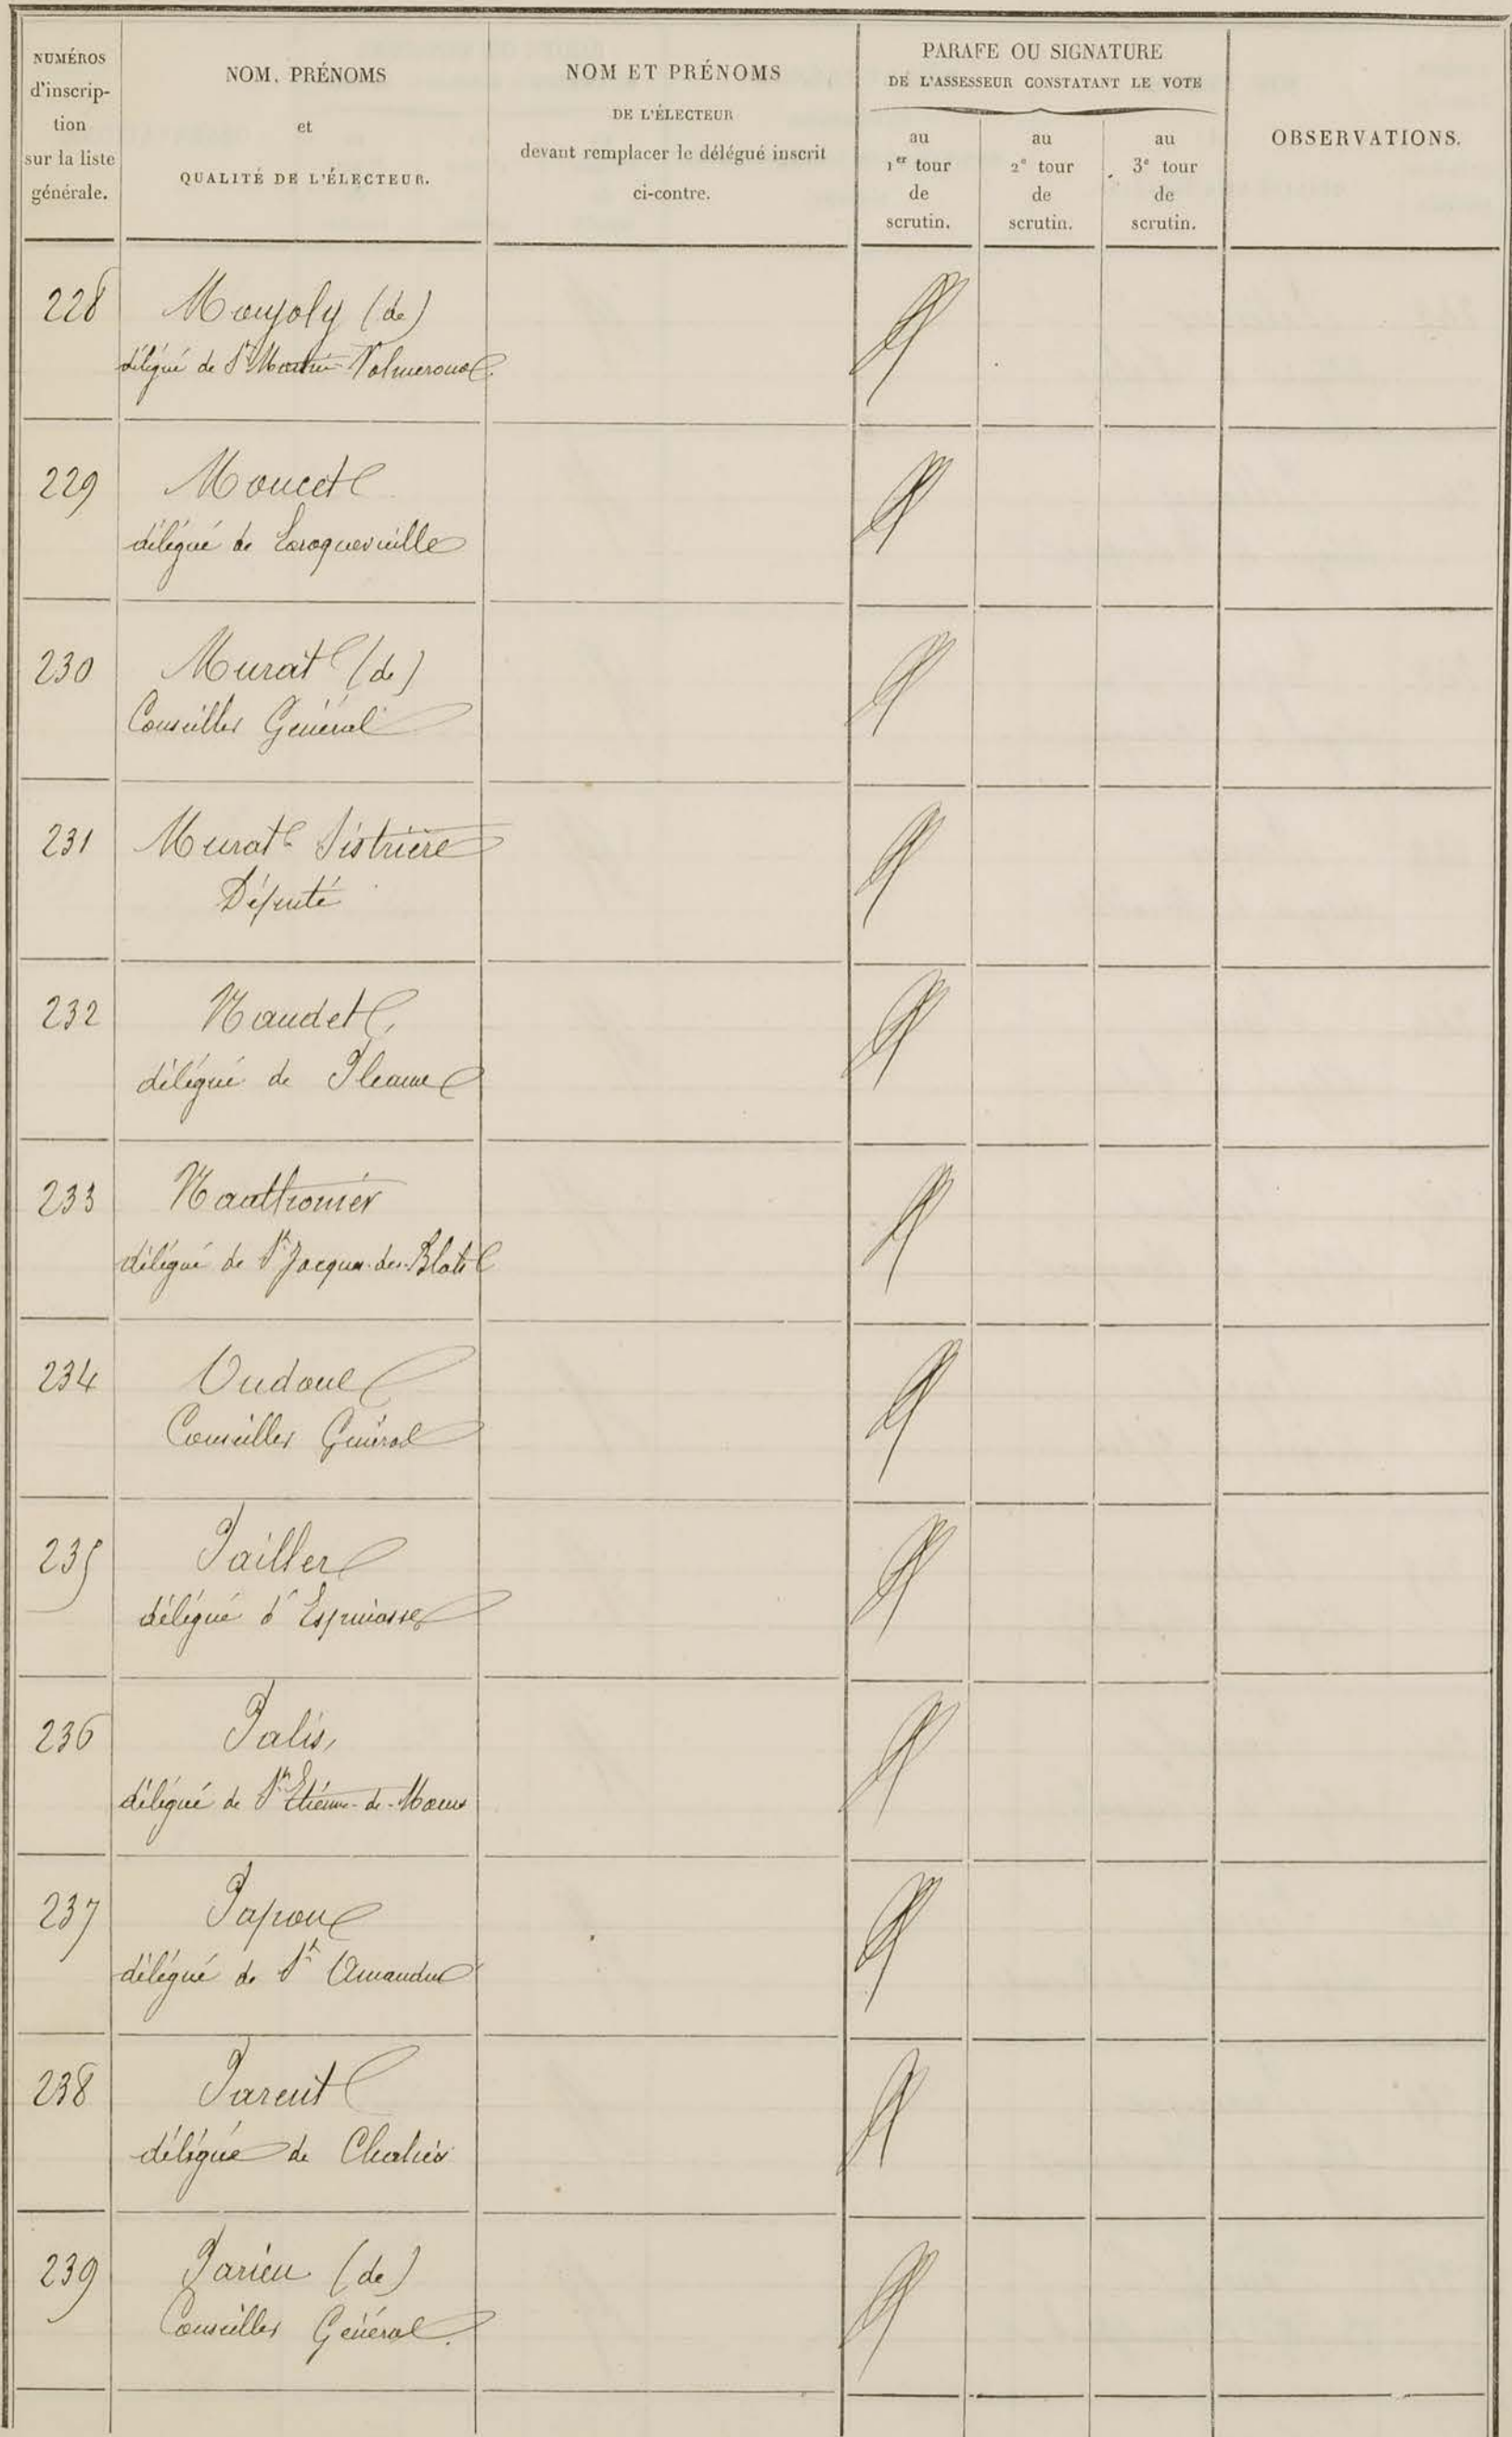 NUMÉROS
d'inscrip-
tion
sur la liste
générale.
NOM, PRÉNOMS
et
QUALITÉ DE L'ÉLECTEUR.
NOM ET PRÉNOMS
DE L'ÉLECTEUR
devant remplacer le délégué inscrit
ci-contre.
PARAFE OU SIGNATURE
DE L'ASSESSEUR CONSTATANT LE VOTE
au
1er tour
de
scrutin.
au
2e tour
de
scrutin.
au
3e tour
de
scrutin.
OBSERVATIONS.
228 Monjoly (de)
délégué de St Martin-Valmeroux
229
délégué de Laroquevieille
230 Murat (de)
Conseiller Général
231 Murat Sistrière
Député
232 Naudet,
délégué de Pleaux
233
délégué de St Jacques-des-Blats
234 Oudoul
Conseiller Général
235 Pailler
délégué d'Espinasse
236 Palis,
délégué de St Etienne-de-Maurs
237 Papon
délégué de St Amandin
238 Parent
délégué de Chaliers
239 Parieu (de)
Conseiller Général.